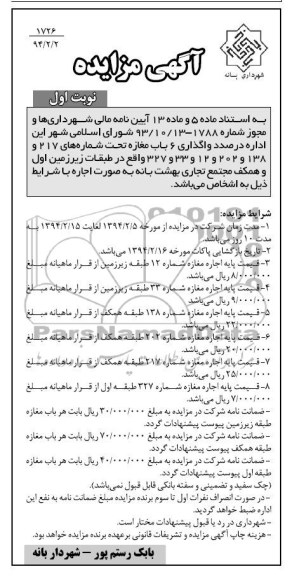 ۱۷۲۶
۹۴/۲/۲
آگهی مزایده
شهرداری بانه
نوبت اول
به استناد ماده ۵ و ماده ۱۳ آیین نامه مالی شهرداری‌ها و
مجوز شماره ۱۷۸۸-۹۳/۱۰/۱۳ شورای اسلامی شهر این
اداره درصدد واگذاری ۶ باب مغازه تحت شماره‌های ۲۱۷ و
۱۳۸ و ۲۰۲ و ۱۲ و ۳۳ و ۳۲۷ واقع در طبقات زیرزمین اول
و همکف مجتمع تجاری بهشت بانه به صورت اجاره با شرایط
ذیل به اشخاص می‌باشد.
شرایط مزایده:
۱- مدت زمان شرکت در مزایده از مورخه ۱۳۹۴/۲/۵ لغایت ۱۳۹۴/۲/۱۵ به
مدت ۱۰ روز می‌باشد.
۲- تاریخ بازگشایی پاکات مورخه ۱۳۹۴/۲/۱۶ می‌باشد.
۳- قیمت پایه اجاره مغازه شماره ۱۲ طبقه زیرزمین از قرار ماهیانه مبلغ
۸/۰۰۰/۰۰۰ ریال می‌باشد.
۴- قیمت پایه اجاره مغازه شماره ۳۳ طبقه زیرزمین از قرار ماهیانه مبلغ
۹/۰۰۰/۰۰۰ ریال می‌باشد.
۵- قیمت پایه اجاره مغازه شماره ۱۳۸ طبقه همکف از قرار ماهیانه مبلغ
۲۲/۰۰۰/۰۰۰ ریال می‌باشد.
۶- قیمت پایه اجاره مغازه شماره ۲۰۲ طبقه همکف از قرار ماهیانه مبلغ
۲۰/۰۰۰/۰۰۰ ریال می‌باشد.
۷- قیمت پایه اجاره مغازه شماره ۲۱۷ طبقه همکف از قرار ماهیانه مبلغ
۲۵/۰۰۰/۰۰۰ ریال می‌باشد.
۸- قیمت پایه اجاره مغازه شماره ۳۲۷ طبقه اول از قرار ماهیانه مبلغ
۷/۰۰۰/۰۰۰ ریال می‌باشد.
- ضمانت نامه شرکت در مزایده به مبلغ ۳۰/۰۰۰/۰۰۰ ریال بابت هر باب مغازه
طبقه زیرزمین پیوست پیشنهادات گردد.
- ضمانت نامه شرکت در مزایده به مبلغ ۷۰/۰۰۰/۰۰۰ ریال بابت هر باب مغازه
طبقه همکف پیوست پیشنهادات گردد.
- ضمانت نامه شرکت در مزایده به مبلغ ۴۰/۰۰۰/۰۰۰ ریال بابت هر باب مغازه
طبقه اول پیوست پیشنهادات گردد.
(چک سفید و تضمینی و سفته بانکی قابل قبول نمی‌باشد).
- در صورت انصراف نفرات اول تا سوم برنده مزایده مبلغ ضمانت نامه به نفع این
اداره ضبط خواهد گردید.
- شهرداری در رد یا قبول پیشنهادات مختار است.
- هزینه چاپ آگهی مزایده و تشریفات قانونی برعهده برنده مزایده خواهد بود.
بابک رستم پور – شهردار بانه